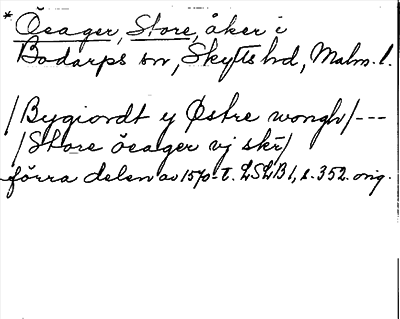 * Öeager, Store, åker i
Bodarps sn, Skytts hd, Malm. l.
/Bygiordt y Østre wongh/---
/Store öeager vj skr/
förra delen av 1570-t. LSLB 1, s. 352. orig.